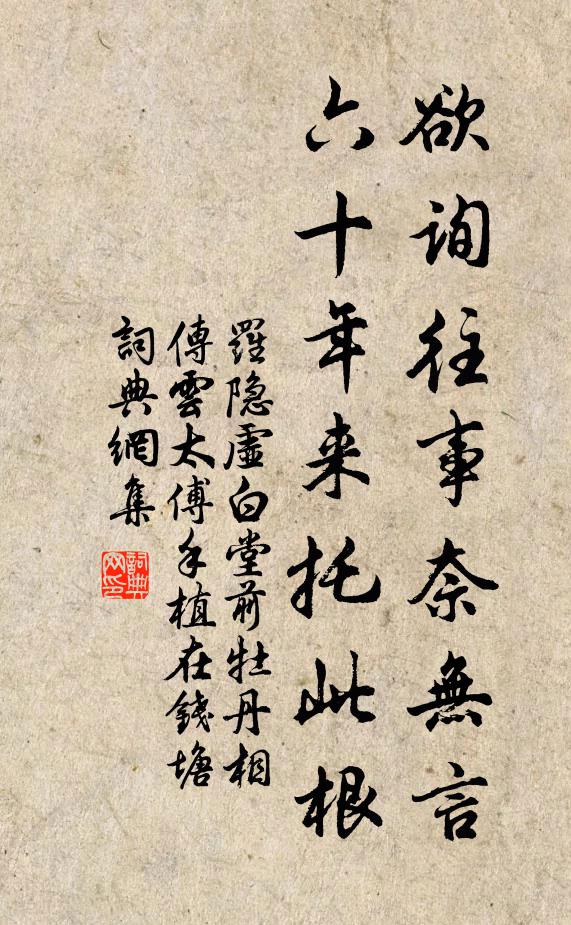 欲詢往事奈無言
六十年来托此根
羅隐虛白堂前牡丹相
傳雲太傅手植在錢塘
詞典網集
詞典
网印